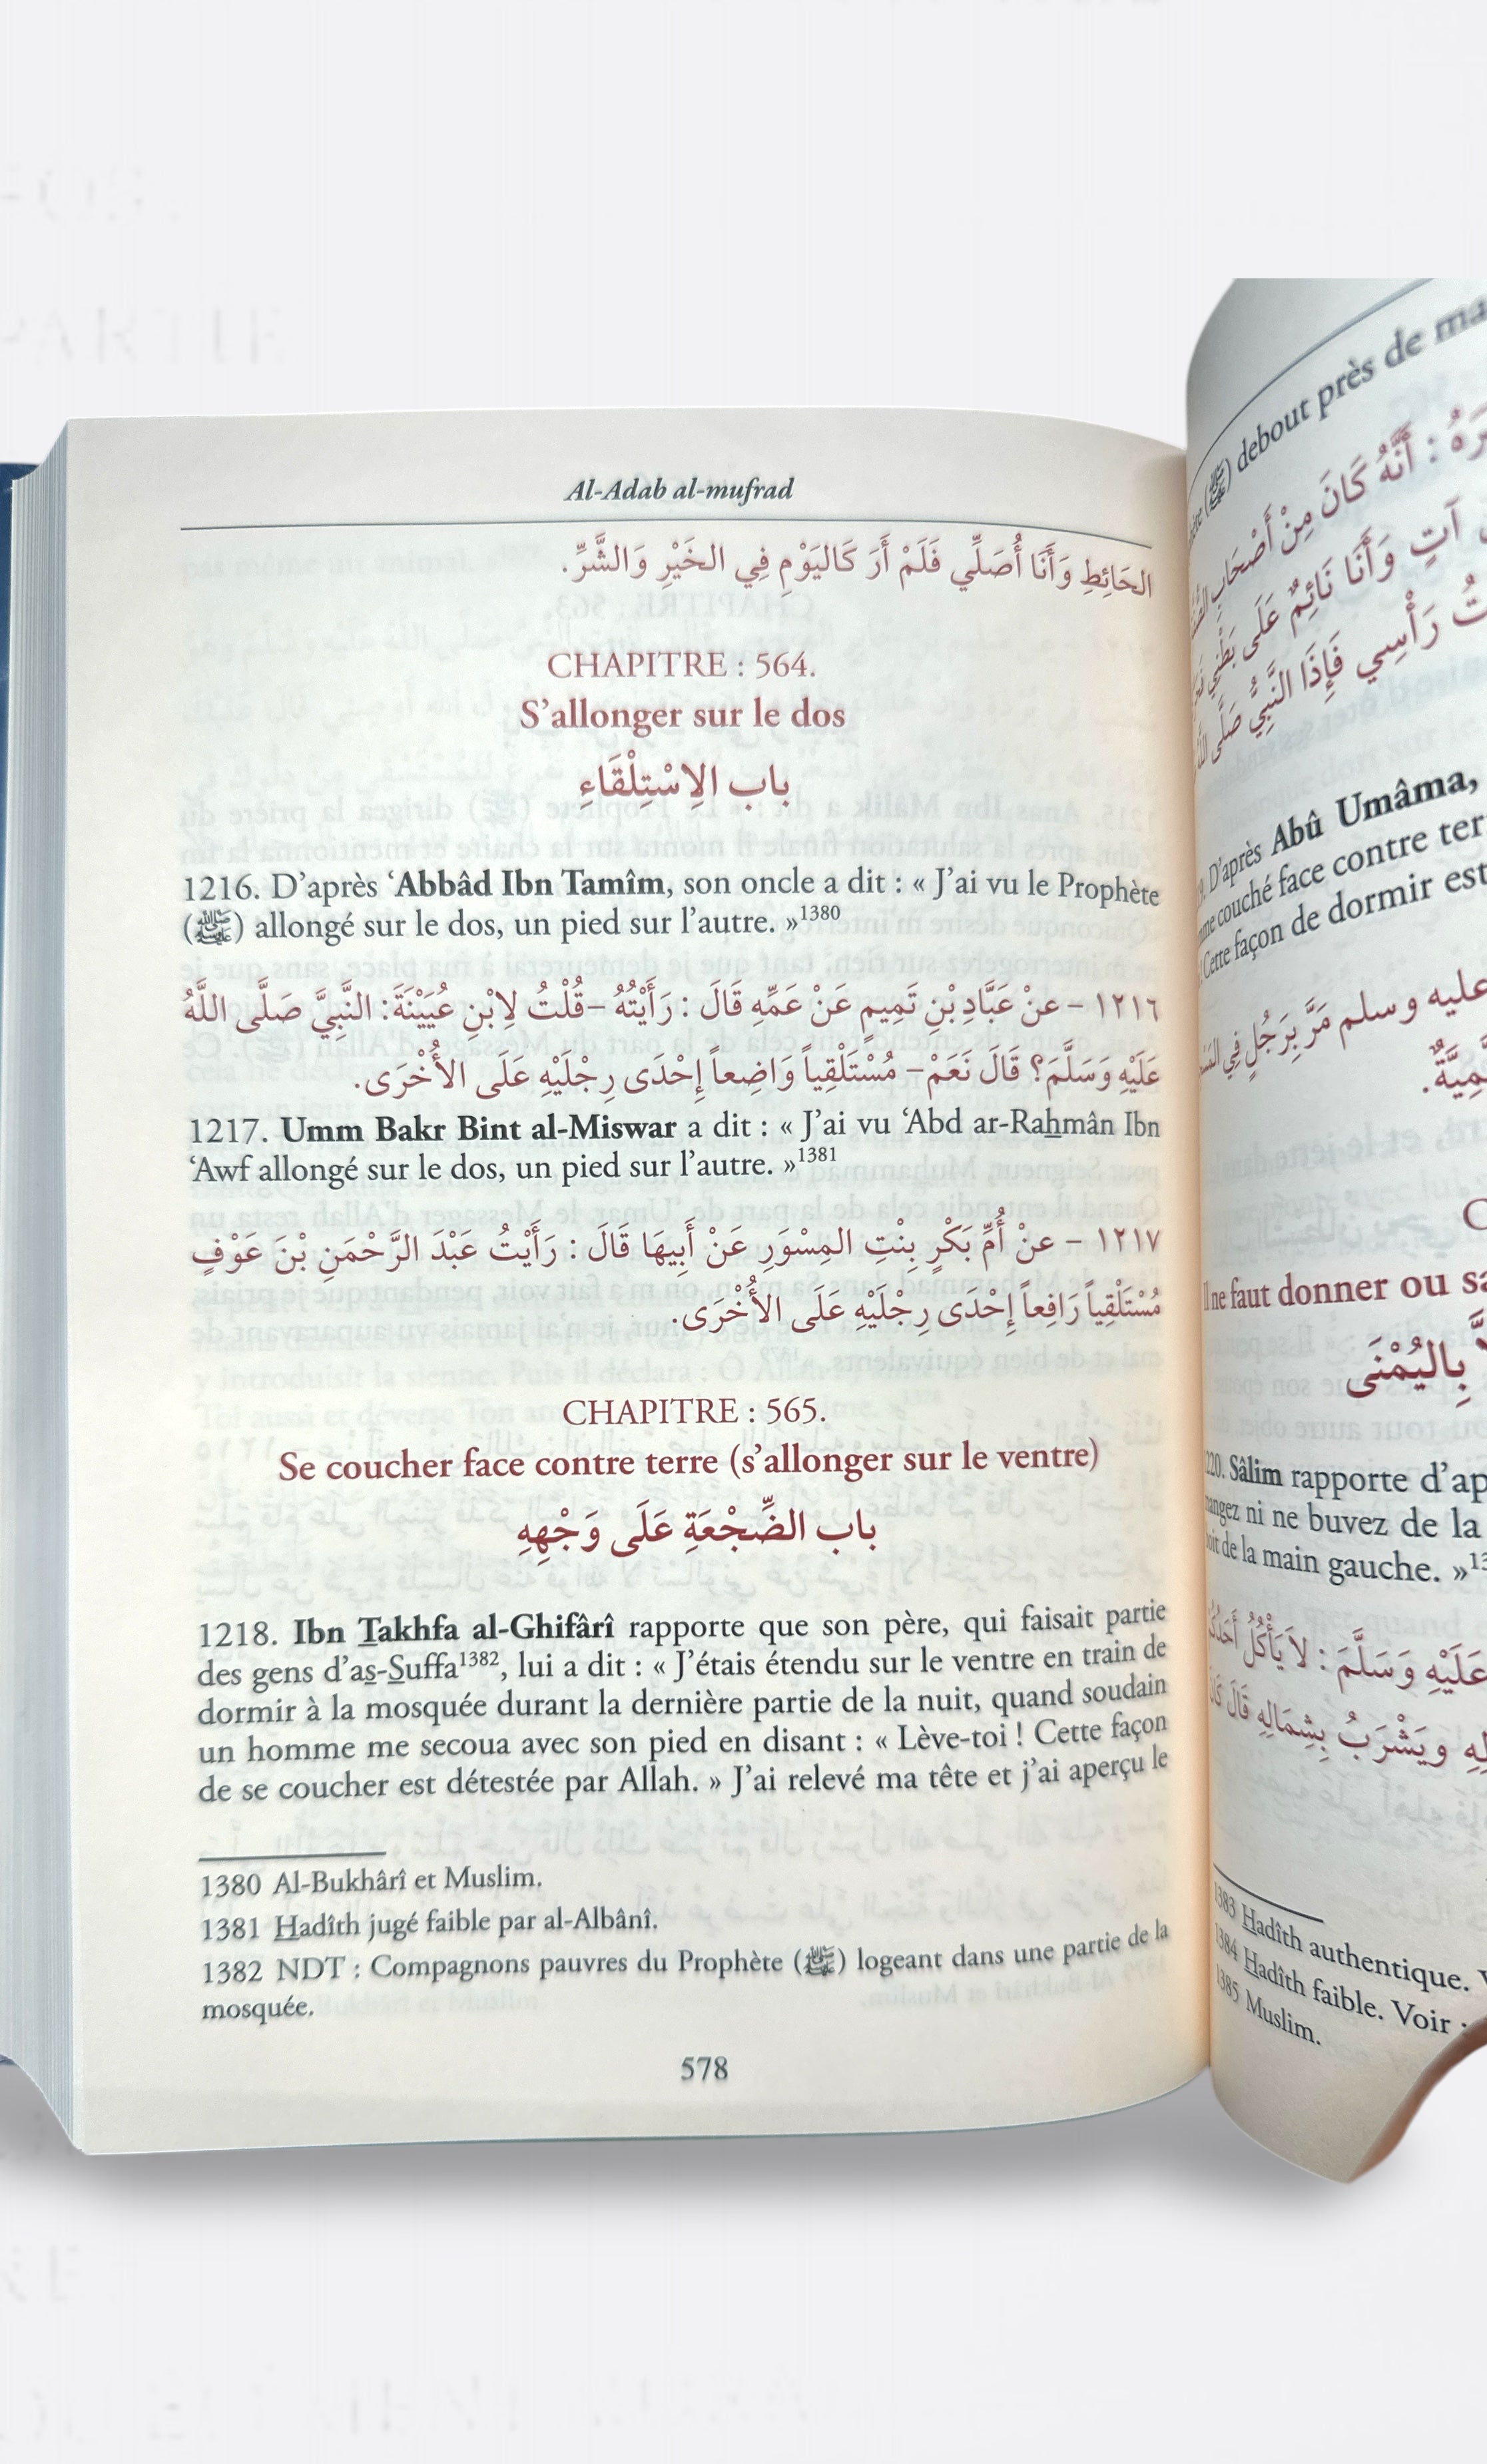 Al-Adab al-mufrad
الحَائِطِ وَأَنَا أُصَلِّي فَلَمْ أَرَ كَاليَوْمِ فِي الخَيْرِ وَالشَّرِّ.
CHAPITRE : 564.
S’allonger sur le dos
باب الِاسْتِلْقَاءِ
1216. D’après ‘Abbâd Ibn Tamîm, son oncle a dit : « J’ai vu le Prophète
(ﷺ) allongé sur le dos, un pied sur l’autre. »1380
١٢١٦ – عنْ عَبَّادِ بْنِ تَمِيمٍ عَنْ عَمِّهِ قَالَ : رَأَيْتُهُ –قُلْتُ لِابْنِ عُيَيْنَةَ: النَّبِيَّ صَلَّى اللَّهُ
عَلَيْهِ وَسَلَّمَ؟ قَالَ نَعَمْ– مُسْتَلْقِياً وَاضِعاً إِحْدَى رِجْلَيْهِ عَلَى الأُخْرَى.
1217. Umm Bakr Bint al-Miswar a dit : « J’ai vu ‘Abd ar-Rahmân Ibn
‘Awf allongé sur le dos, un pied sur l’autre. »1381
١٢١٧ – عنْ أُمِّ بَكْرٍ بِنْتِ المِسْوَرِ عَنْ أَبِيهَا قَالَ : رَأَيْتُ عَبْدَ الرَّحْمَنِ بْنَ عَوْفٍ
مُسْتَلْقِياً رَافِعاً إِحْدَى رِجْلَيْهِ عَلَى الأُخْرَى.
CHAPITRE : 565.
Se coucher face contre terre (s’allonger sur le ventre)
باب الضِّجْعَةِ عَلَى وَجْهِهِ
1218. Ibn Takhfa al-Ghifârî rapporte que son père, qui faisait partie
des gens d’as-Suffa1382, lui a dit : « J’étais étendu sur le ventre en train de
dormir à la mosquée durant la dernière partie de la nuit, quand soudain
un homme me secoua avec son pied en disant : « Lève-toi ! Cette façon
de se coucher est détestée par Allah. » J’ai relevé ma tête et j’ai aperçu le
1380 Al-Bukhârî et Muslim.
1381 Hadîth jugé faible par al-Albânî.
1382 NDT : Compagnons pauvres du Prophète (ﷺ) logeant dans une partie de la
mosquée.
578
(ﷺ) debout près de
: أَنَّهُ كَانَ مِنْ أَصْحَابِ
آتٍ وَأَنَا نَائِمٌ عَلَى بَطْنِي
رَأْسِي فَإِذَا النَّبِيُّ صَلَّى
D’après Abû Umâma,
couché face contre
Cette façon de dormir est
عليه وسلم مَرَّ بِرَجُلٍ فِي
Il ne faut donner ou
بِاليُمْنَى
Sâlim rapporte d’ap
ni ne buvez de la
de la main gauche. »
عَلَيْهِ وَسَلَّمَ : لاَ يَأْكُلْ
ويَشْرَبُ بِشِمَالِهِ قَالَ
1383 Hadîth authentique.
1384 Hadîth faible. Voir :
1385 Muslim.